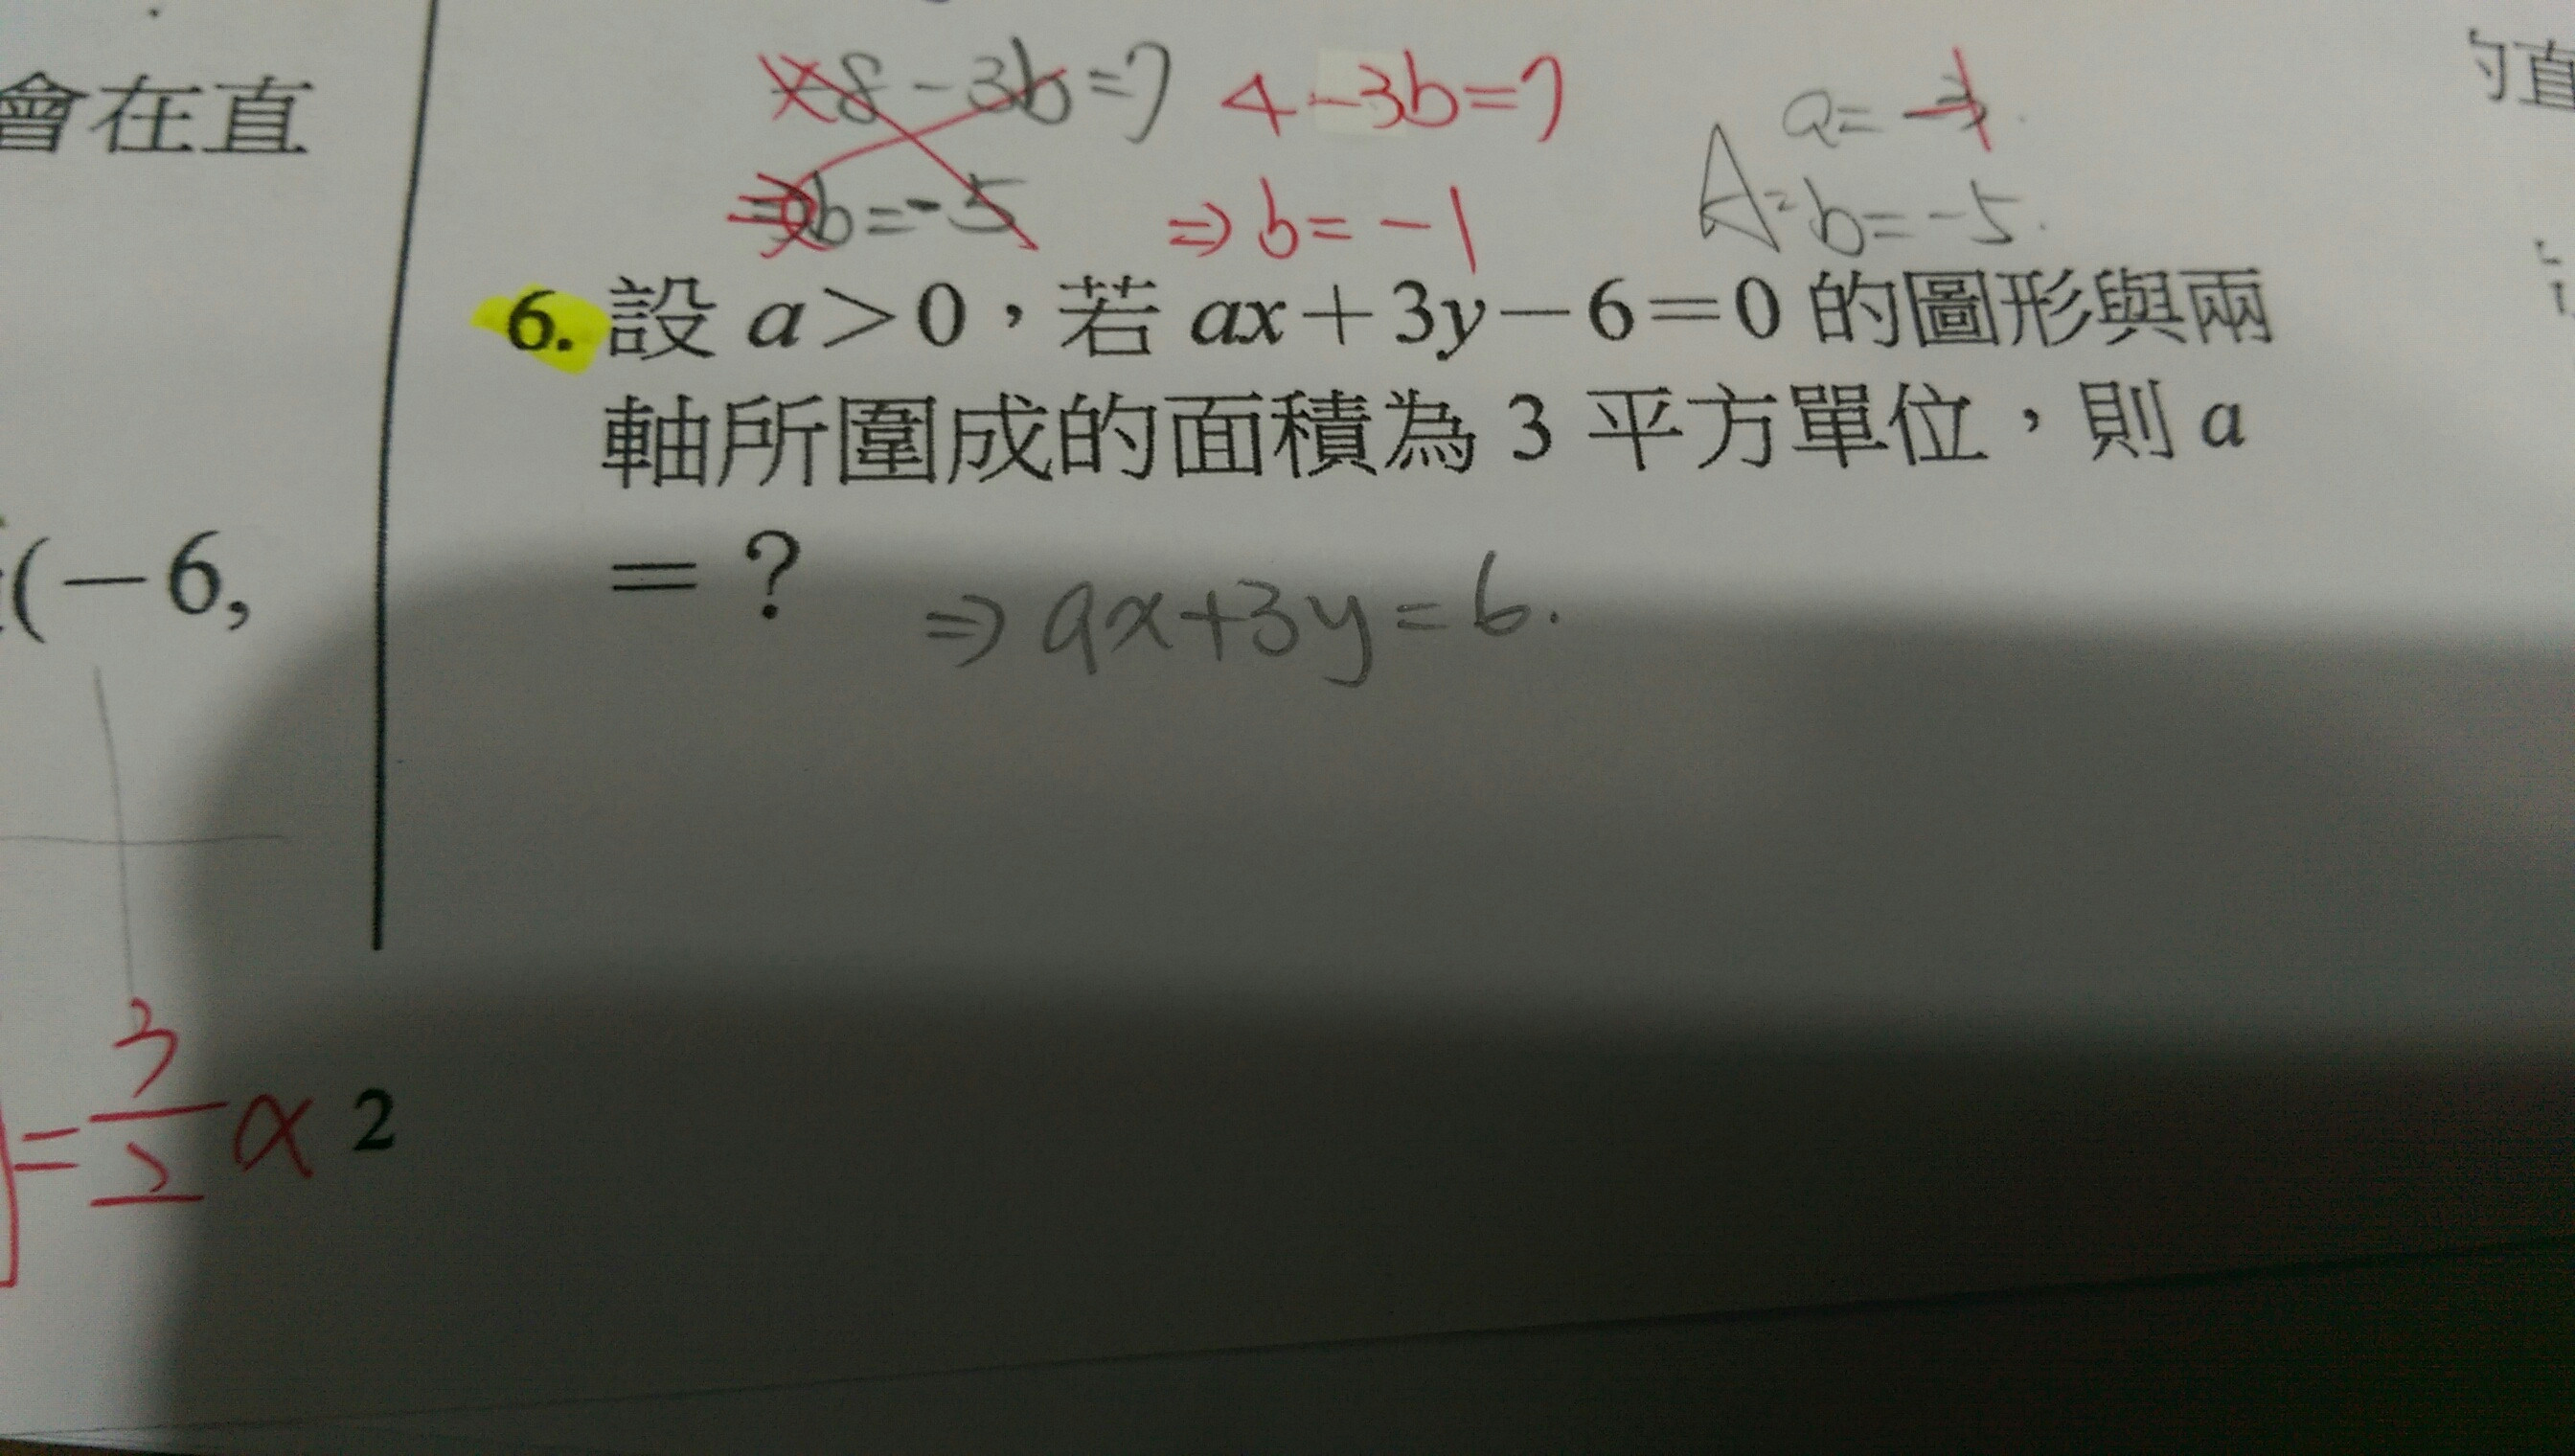 會在直
(-6,
=3/2 x 2
-8-3b=7 4-3b=7 a=
⇒b=-5 ⇒b=-1 A=b=-5.
6. 設 a>0,若 ax+3y-6=0 的圖形與兩
軸所圍成的面積為 3 平方單位,則 a
=?
⇒ax+3y=6.
的直